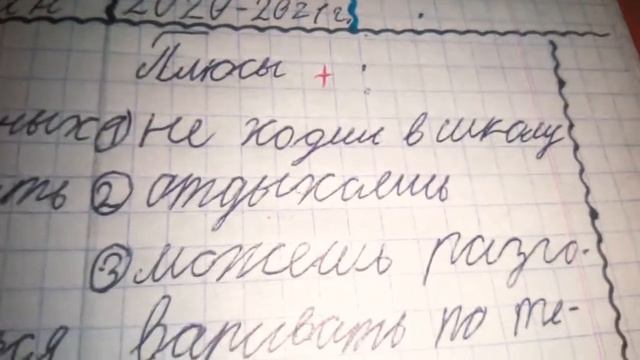 2020-2021г.
Плюсы + :
ных ① не ходим в школу
ть ② отдыхаешь
③ можешь разго-
варивать по те-